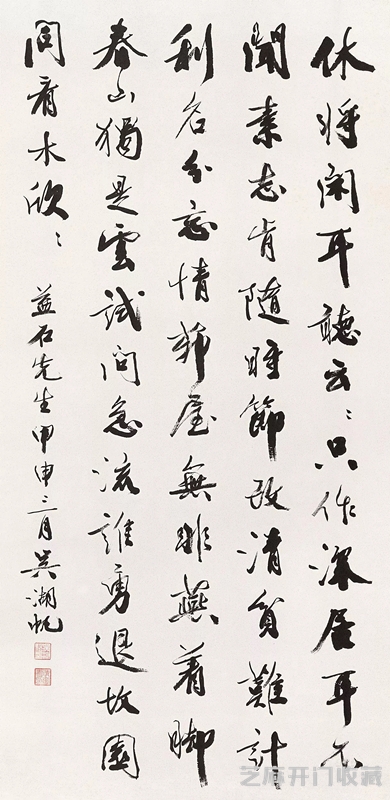 休將閑耳聽云〻只作深居耳不
聞素志肯隨時節改清貧難計
利名分忘情華屋無非燕着脚
春山獨是雲試問急流誰勇退故園
同看木欣〻
益石先生甲申三月吳湖帆
芝麻开门收藏